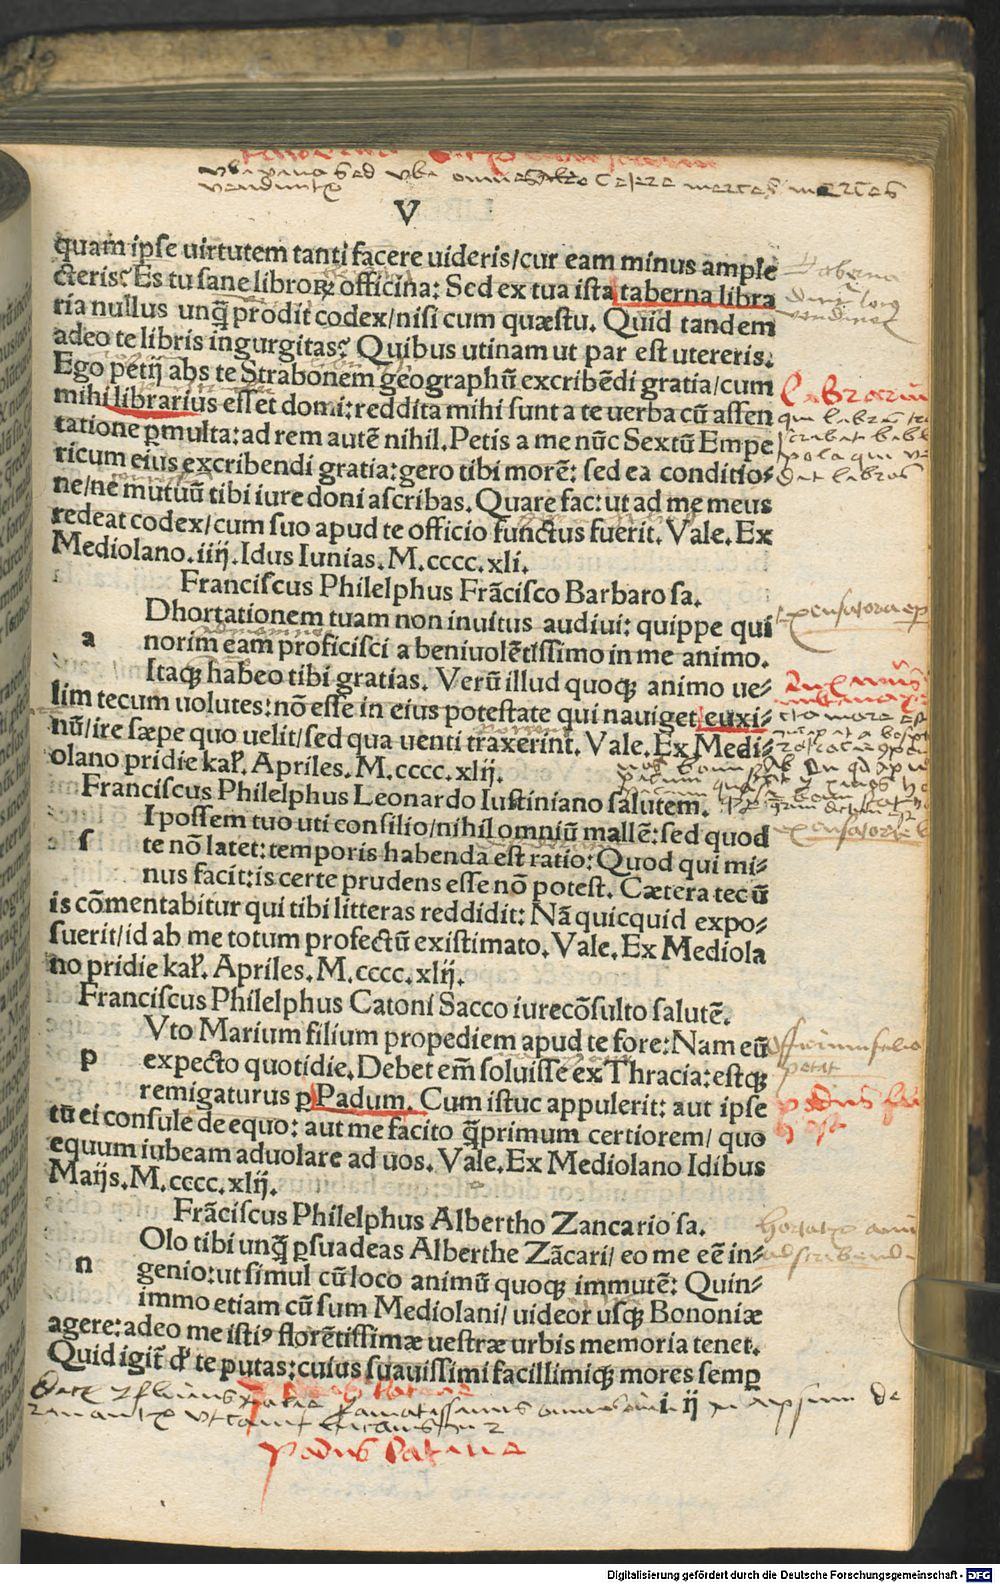 vbi vina sed vbi omnes cetere merces merces
venduntur
V
quam ipse uirtutem tanti facere uideris/cur eam minus ample
cteris? Es tu sane libroꝝ officina: Sed ex tua ista taberna libra
ria nullus unq̃ prodit codex/nisi cum quæstu. Quid tandem
adeo te libris ingurgitas? Quibus utinam ut par est utereris.
Ego petij abs te Strabonem geographũ excribẽdi gratia/cum
mihi librarius esset domi: reddita mihi sunt a te uerba cũ assen
tatione ꝑmulta: ad rem autẽ nihil. Petis a me nũc Sextũ Empe
ricum eius excribendi gratia: gero tibi morẽ: sed ea conditio-
ne/ne mutuũ tibi iure doni ascribas. Quare fac: ut ad me meus
redeat codex/cum suo apud te officio functus fuerit. Vale. Ex
Mediolano. iiij. Idus Iunias. M. cccc. xli.
Franciscus Philelphus Frãcisco Barbaro sa.
Dhortationem tuam non inuitus audiui: quippe qui
a norim eam proficisci a beniuolẽtissimo in me animo.
Itaqꝫ habeo tibi gratias. Verũ illud quoqꝫ animo ue-
lim tecum uolutes: nõ esse in eius potestate qui nauiget euxi-
nũ/ire sæpe quo uelit/sed qua uenti traxerint. Vale. Ex Medi-
olano pridie kaƚ. Apriles. M. cccc. xlij.
Franciscus Philelphus Leonardo Iustiniano salutem.
I possem tuo uti consilio/nihil omniũ mallẽ: sed quod
s te nõ latet: temporis habenda est ratio: Quod qui mi-
nus facit: is certe prudens esse nõ potest. Cætera tecũ
is cõmentabitur qui tibi litteras reddidit: Nã quicquid expo-
suerit/id ab me totum profectũ existimato. Vale. Ex Mediola
no pridie kaƚ. Apriles. M. cccc. xlij.
Franciscus Philelphus Catoni Sacco iurecõsulto salutẽ.
Vto Marium filium propediem apud te fore: Nam eũ
p expecto quotidie. Debet em̃ soluisse ex Thracia: estqꝫ
remigaturus ꝑ Padum. Cum istuc appulerit: aut ipse
tu ei consule de equo: aut me facito q̃primum certiorem/ quo
equum iubeam aduolare ad uos. Vale. Ex Mediolano Idibus
Maijs. M. cccc. xlij.
Frãciscus Philelphus Albertho Zancario sa.
Olo tibi unq̃ ꝑsuadeas Alberthe Zãcari/ eo me eẽ in-
n genio: ut simul cũ loco animũ quoqꝫ immutẽ: Quin-
immo etiam cũ sum Mediolani/ uideor usqꝫ Bononiæ
agere: adeo me istiꝰ florẽtissimæ uestræ urbis memoria tenet.
Quid igit̃ de te putas: cuius suauissimi facillimiqꝫ mores semꝑ
i. ij
Padus latine
Taberna
Librarius
qui libros
scribat bibli
pola qui ve
dit libros
petit
padus
Digitalisierung gefördert durch die Deutsche Forschungsgemeinschaft - DFG